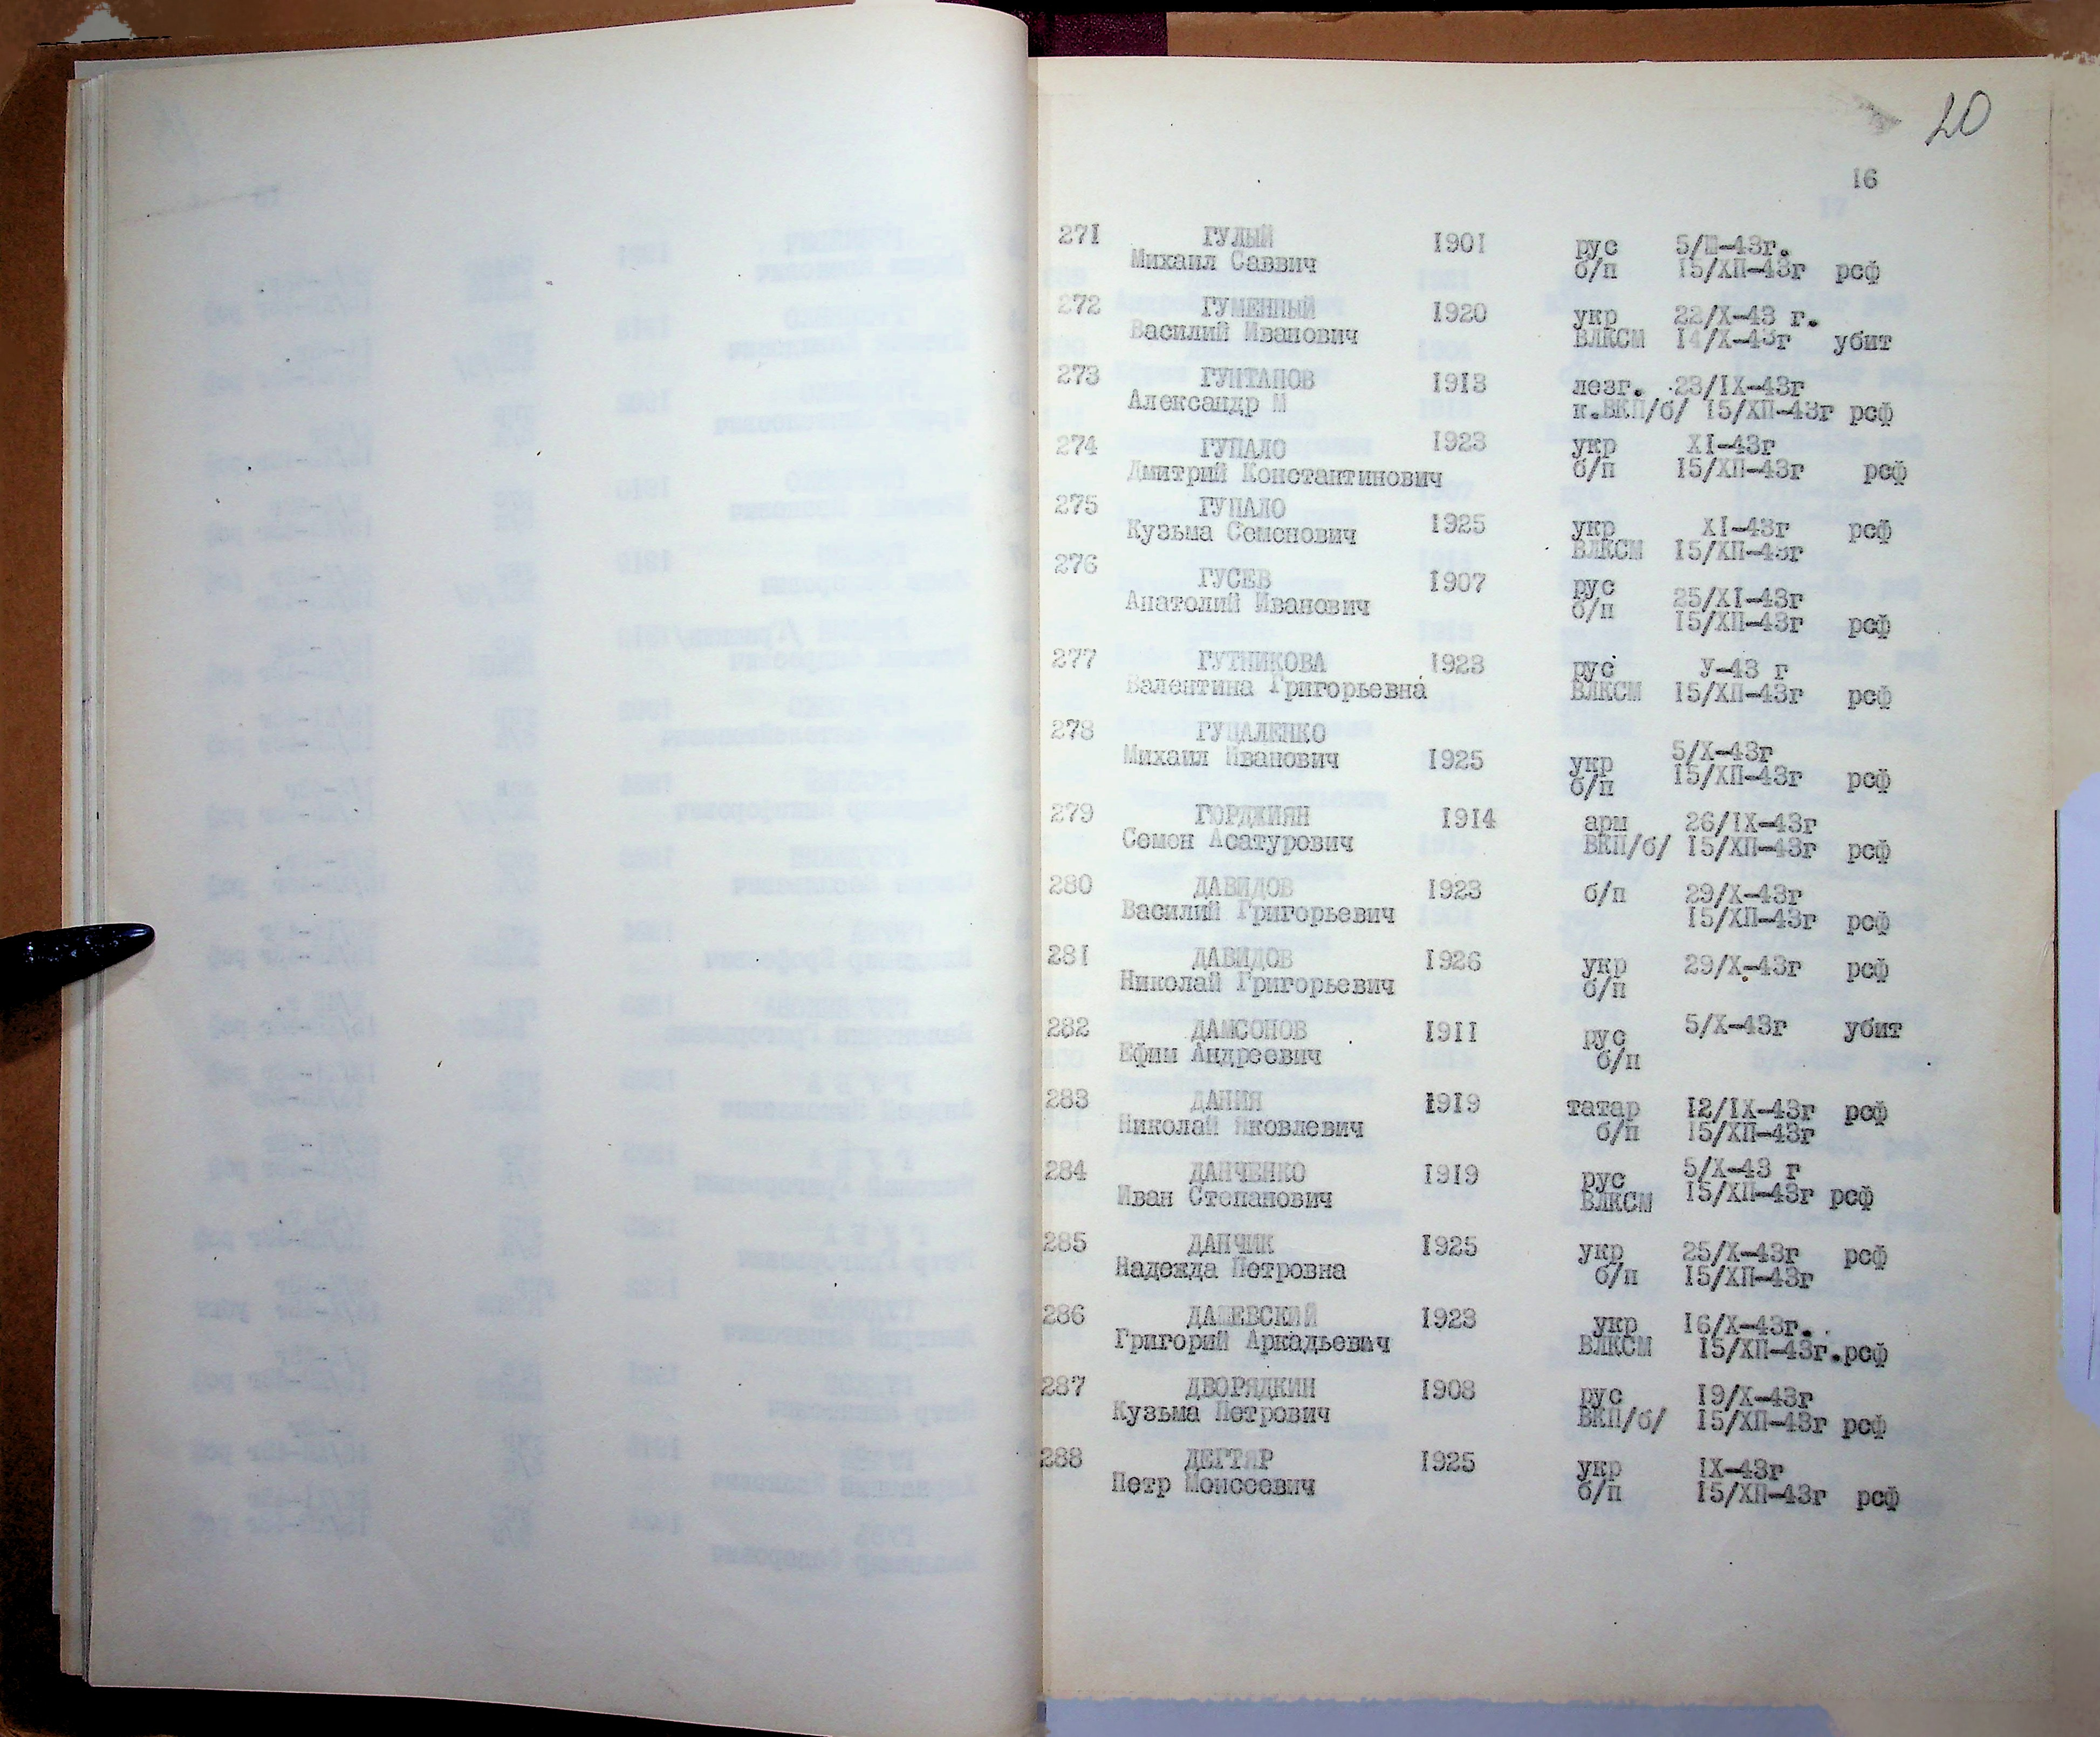 20
16
271 ГУЛЫЙ 1901 рус 5/Ш-43г.
Михаил Саввич б/п 15/ХП-43г рсф
272 ГУМЕННЫЙ 1920 укр 22/Х-43 г.
Василий Иванович ВЛКСМ 14/Х-43г убит
273 ГУНТАПОВ 1913 лезг. 23/IХ-43г
Александр М к.ВКП/б/ 15/ХП-43г рсф
274 ГУПАЛО 1923 укр ХI-43г
Дмитрий Константинович б/п 15/ХП-43г рсф
275 ГУПАЛО
Кузьма Семенович 1925 укр ХI-43г рсф
ВЛКСМ 15/ХП-43г
276 ГУСЕВ 1907 рус 25/ХI-43г
Анатолий Иванович б/п 15/ХП-43г рсф
277 ГУТНИКОВА 1923 рус У-43 г
Валентина Григорьевна ВЛКСМ 15/ХП-43г рсф
278 ГУПАЛЕНКО 5/Х-43г
Михаил Иванович 1925 укр 15/ХП-43г рсф
б/п
279 ГЮРДЖИЯН 1914 арм 26/IХ-43г
Семен Асатурович ВКП/б/ 15/ХП-43г рсф
280 ДАВИДОВ 1923 б/п 29/Х-43г
Василий Григорьевич 15/ХП-43г рсф
281 ДАВИДОВ 1926 укр 29/Х-43г рсф
Николай Григорьевич б/п
282 ДАМСОНОВ 1911 рус 5/Х-43г убит
Ефим Андреевич б/п
283 ДАНИЯ 1919 татар 12/IХ-43г рсф
Николай Яковлевич б/п 15/ХП-43г
284 ДАНЧЕНКО 1919 рус 5/Х-43 г
Иван Степанович ВЛКСМ 15/ХП-43г рсф
285 ДАНЧИК 1925 укр 25/Х-43г рсф
Надежда Петровна б/п 15/ХП-43г
286 ДАШЕВСКИЙ 1923 укр 16/Х-43г.
Григорий Аркадьевич ВЛКСМ 15/ХП-43г.рсф
287 ДВОРЯДКИН 1908 рус 19/Х-43г
Кузьма Петрович ВКП/б/ 15/ХП-43г рсф
288 ДЕГТЯР 1925 укр IХ-43г
Петр Моисеевич б/п 15/ХП-43г рсф